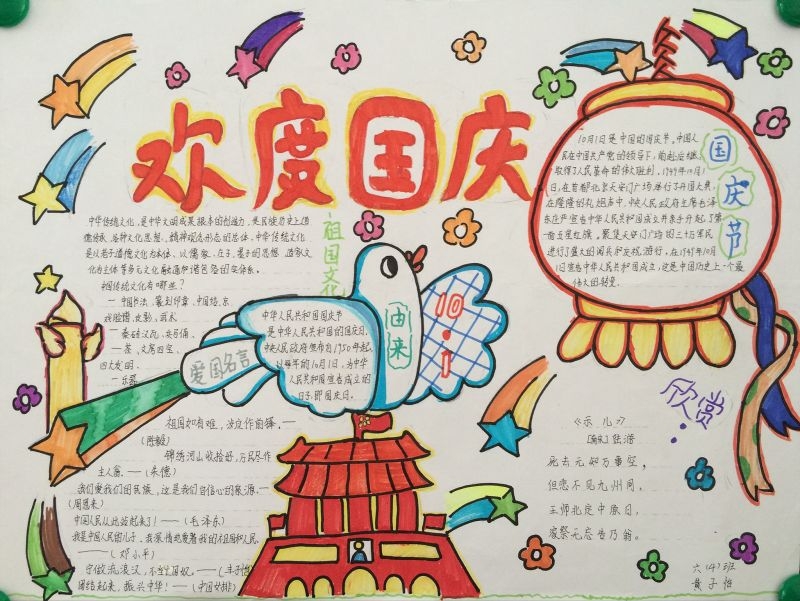 欢度国庆
中华传统文化,是中华文明成果根本的创造力,是民族历史上道
德传承、各种文化思想、精神观念形态的总体。中华传统文化
是以老子道德文化为本体、以儒家、庄子、墨子的思想、道家文
化为主体等多元文化融通和谐包容的实体系。
中国传统文化有哪些?
一 中国书法、篆刻印章、中国结、京
戏脸谱、皮影、武术
一 秦砖汉瓦、兵马俑
一 茶
文房四宝、
四大发明、
一 乐器
祖国文化
中华人民共和国国庆节
是中华人民共和国的国庆日。
中央人民政府宣布自1950年起,
以每年的10月1日,为中华
人民共和国宣告成立的
日子,即国庆日。
由来
10.1
爱国名言
祖国如有难,汝应作前锋。——
(陈毅)
锦绣河山收拾好,万民尽作
主人翁。——(朱德)
我们爱我们的民族,这是我们自信心的源泉。—
(周恩来)
中国人民从此站起来了!——(毛泽东)
我是中国人民的儿子,我深情地爱着我的祖国和人民。
——(邓小平)
宁做流浪汉,不当亡国奴。——(丰子恺)
团结起来,振兴中华!——(中国女排)
国庆节
10月1日是中国的国庆节。中国人
民在中国共产党的领导下,前赴后继,
取得了人民革命的伟大胜利。1949年10月1
日,在首都北京天安门广场举行了开国大典,
在隆隆的礼炮声中,中央人民政府主席毛泽
东庄严宣告中华人民共和国成立并亲手升起了第
一面五星红旗。聚集天安门广场的三十万军民
进行了盛大的阅兵和庆祝游行。在1949年10月
1日宣告中华人民共和国成立,这是中国历史上一个最
伟大的转变。
欣赏
《示儿》
[南宋]陆游
死去元知万事空,
但悲不见九州同。
王师北定中原日,
家祭无忘告乃翁。
六(4)班
黄子怡